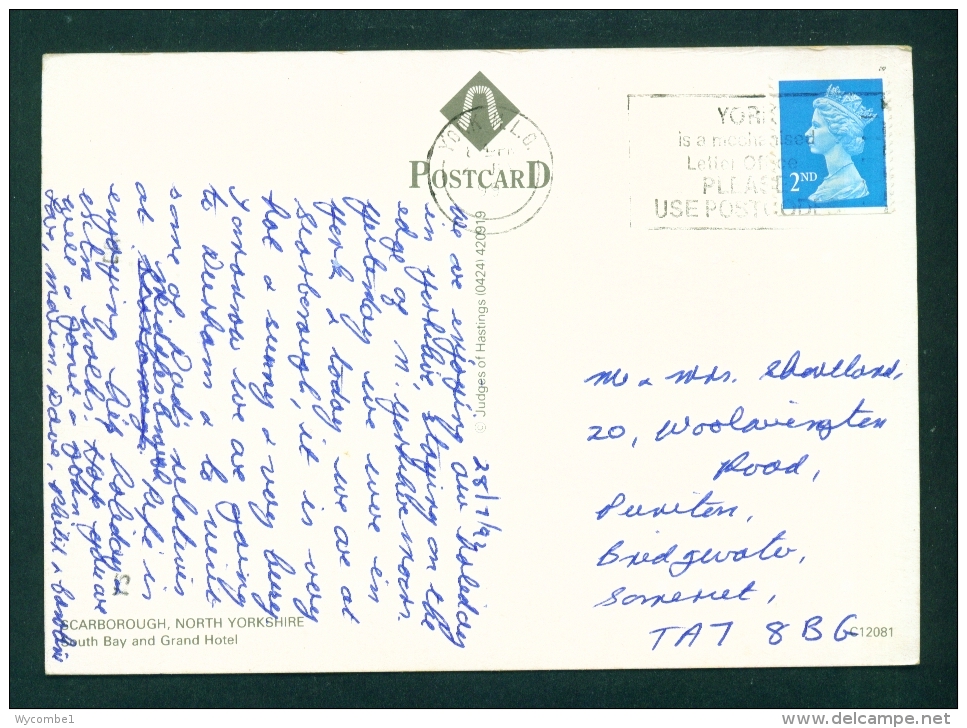 POSTCARD
YORK
2ND
USE POSTCODE
28/7/92
We are enjoying our holiday
in Yorkshire, staying on the
edge of N. Yorkshire moors.
Yesterday we were in
York & today we are at
Scarborough, it is very
hot & sunny & very busy
Tomorrow we are going
to Durham & to visit
some of Dad's relatives
at Middlesbrough. is
enjoying his holiday &
extra walks. Hope you are
well & Janet & John
love, Marion, Dave,
© Judges of Hastings (0424) 420919
Mr & Mrs. Shortland,
20, Woolavington
Road,
Puriton,
Bridgwater,
Somerset,
TA7 8BG
SCARBOROUGH, NORTH YORKSHIRE
South Bay and Grand Hotel
C12081
Wycombe1
www.delcampe.net